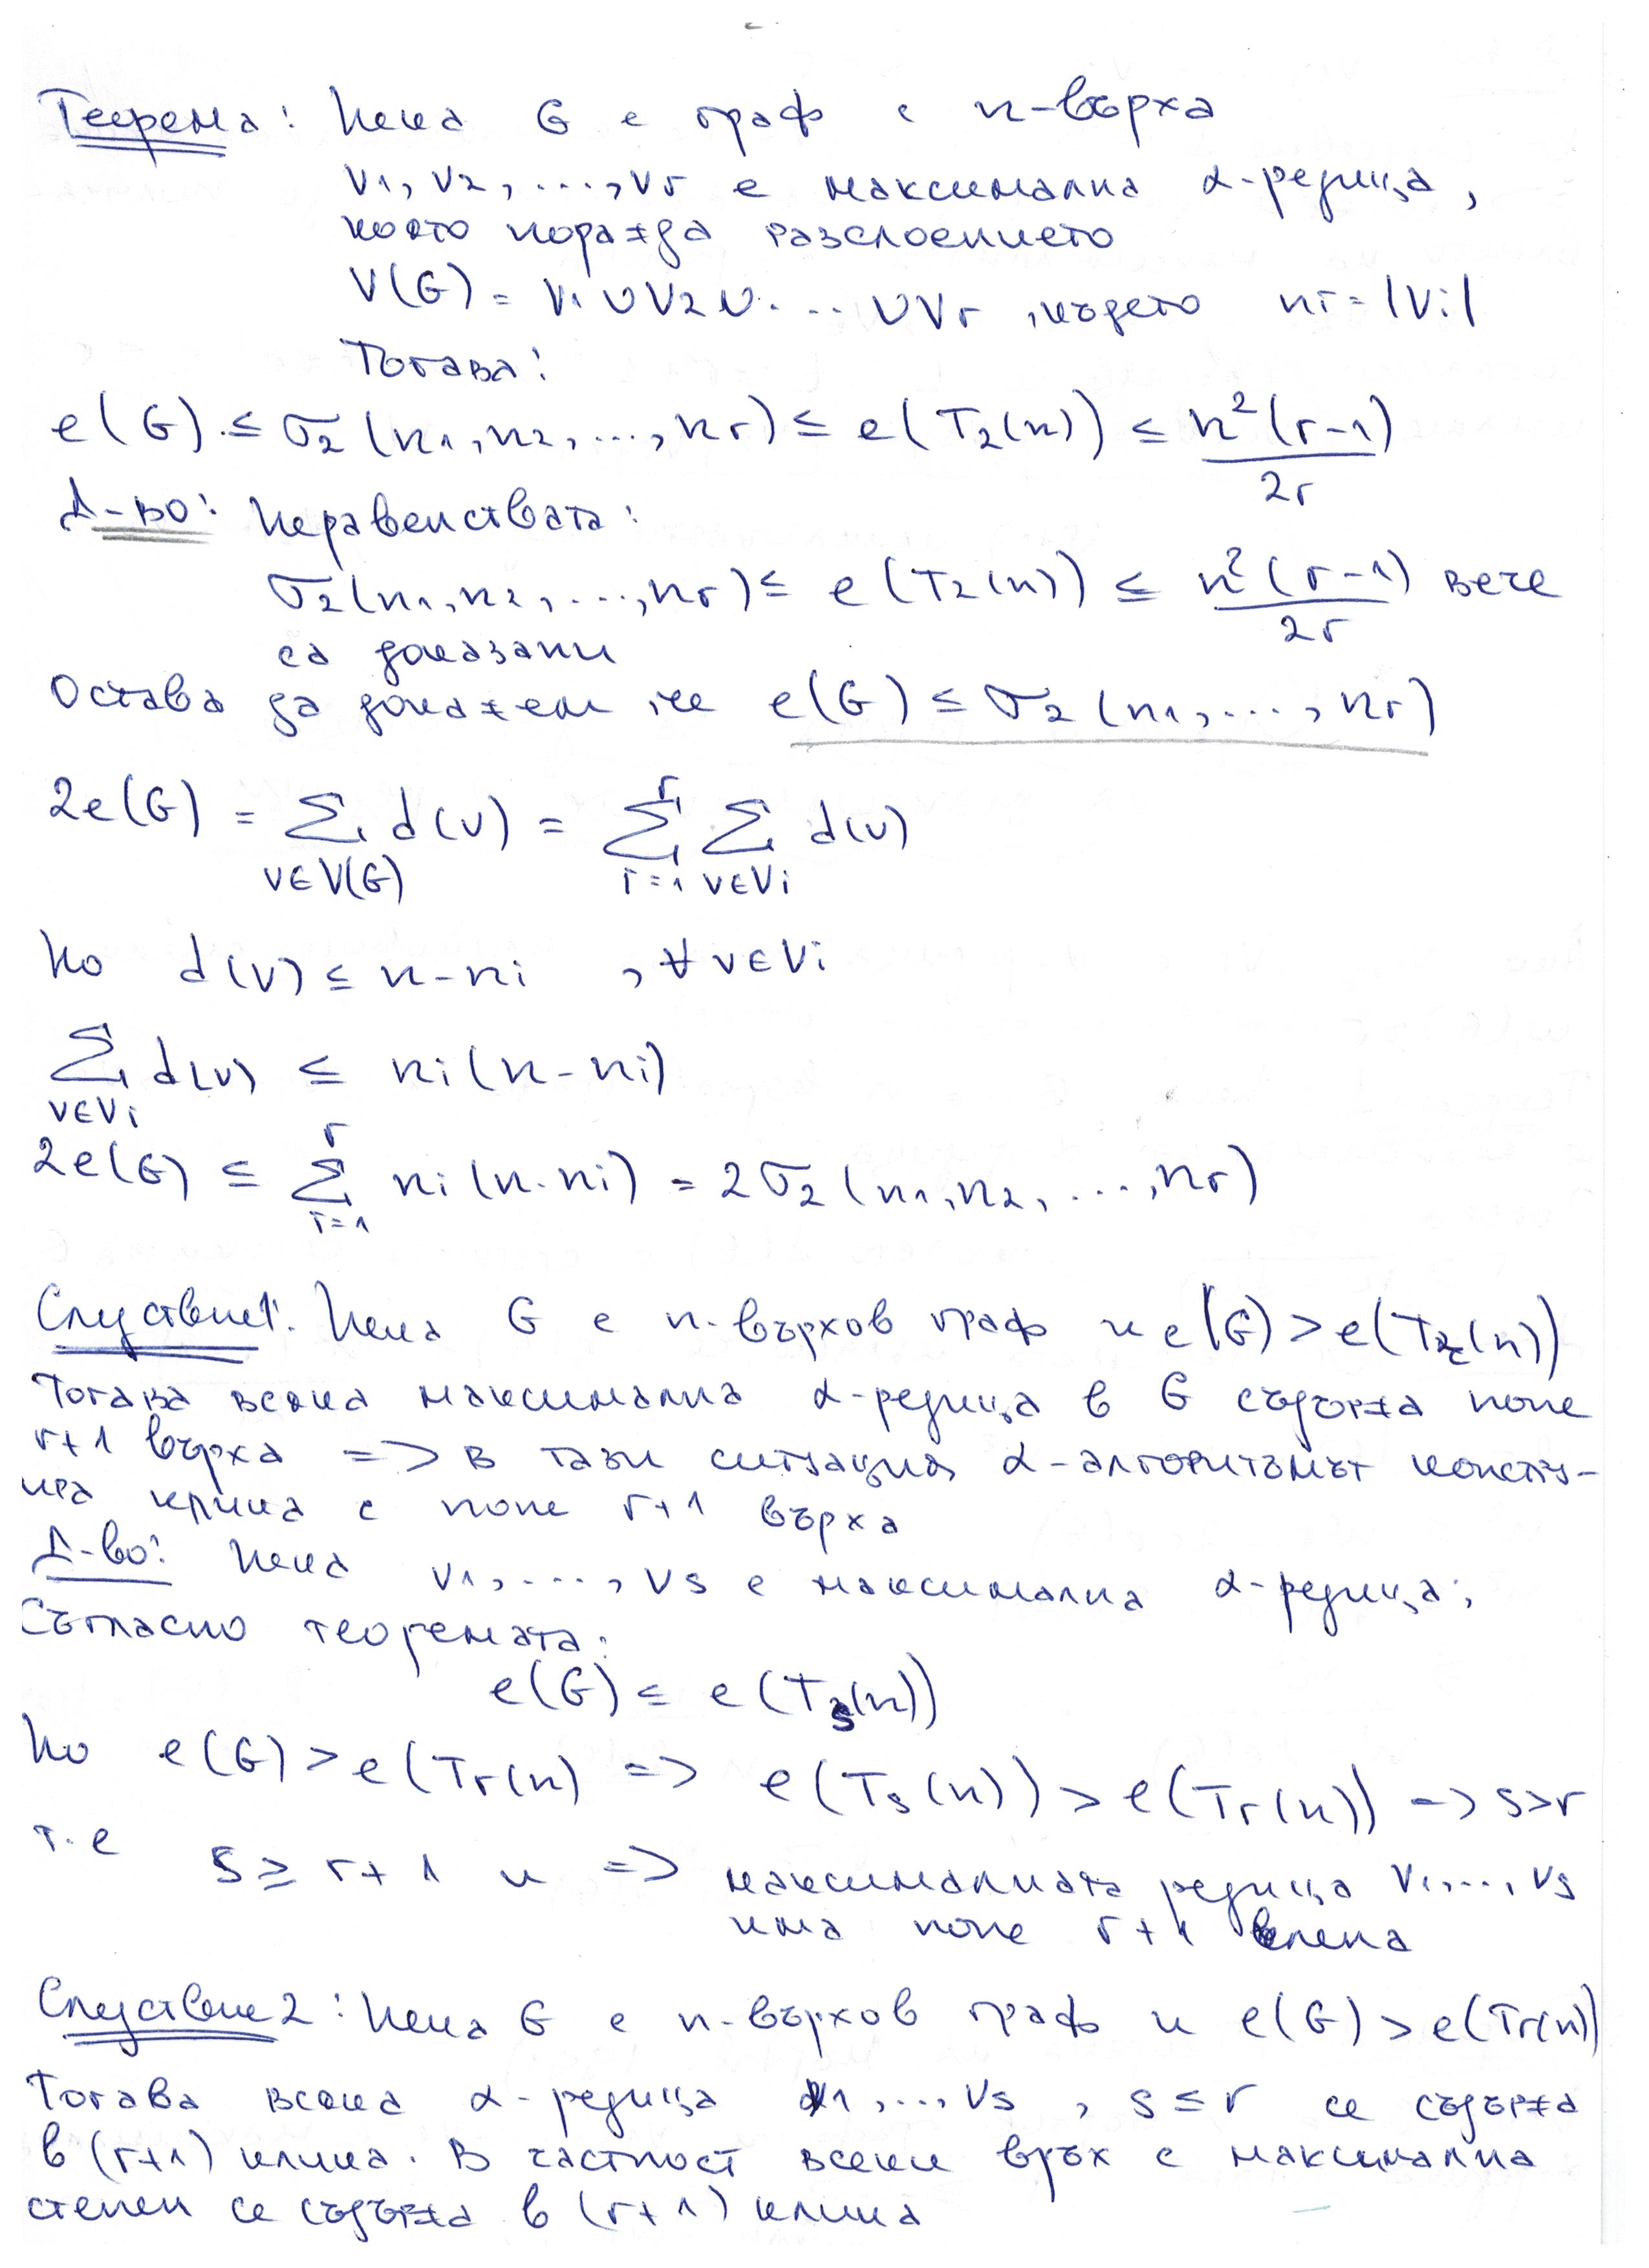 Теорема: Нека G е граф с n-върха
v1, v2, ..., vr е максимална α-редица,
която поражда разслоението
V(G) = V1 ∪ V2 ∪ ... ∪ Vr, където ni = |Vi|
Тогава:
e(G) ≤ σ2(n1, n2, ..., nr) ≤ e(T2(n)) ≤ n²(r-1)/2r
Д-во: Неравенствата:
σ2(n1, n2, ..., nr) ≤ e(T2(n)) ≤ n²(r-1)/2r вече
са доказани
Остава да докажем, че e(G) ≤ σ2(n1, ..., nr)
2e(G) = Σ_{v∈V(G)} d(v) = Σ_{i=1}^{r} Σ_{v∈Vi} d(v)
Но d(v) ≤ n-ni , ∀ v∈Vi
Σ_{v∈Vi} d(v) ≤ ni(n-ni)
2e(G) ≤ Σ_{i=1}^{r} ni(n-ni) = 2σ2(n1, n2, ..., nr)
Следствие1: Нека G е n-върхов граф и e(G) > e(Tr(n))
Тогава всяка максимална α-редица в G съдържа поне
r+1 върха => в тази ситуация α-алгоритъмът констру-
ира клика с поне r+1 върха
Д-во: Нека v1, ..., vs е максимална α-редица;
Съгласно теоремата:
e(G) ≤ e(Ts(n))
Но e(G) > e(Tr(n) => e(Ts(n)) > e(Tr(n)) => s>r
т.е s ≥ r+1 и => максималната редица v1, ..., vs
има поне r+1 члена
Следствие2: Нека G е n-върхов граф и e(G) > e(Tr(n))
Тогава всяка α-редица v1, ..., vs , s ≤ r се съдържа
в (r+1) клика. В частност всеки връх с максимална
степен се съдържа в (r+1) клика